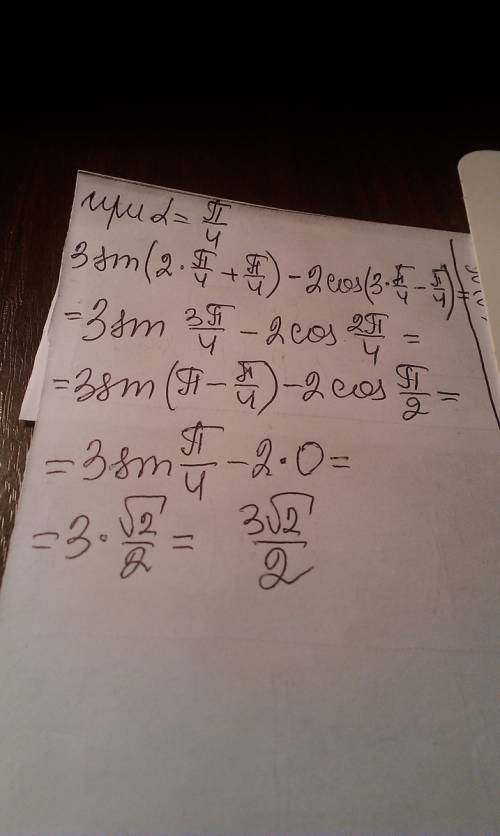 при α = π/4
3 sin(2·π/4 + π/4) − 2 cos(3·π/4 − π/4) =
= 3 sin 3π/4 − 2 cos 2π/4 =
= 3 sin(π − π/4) − 2 cos π/2 =
= 3 sin π/4 − 2·0 =
= 3·√2/2 = 3√2/2